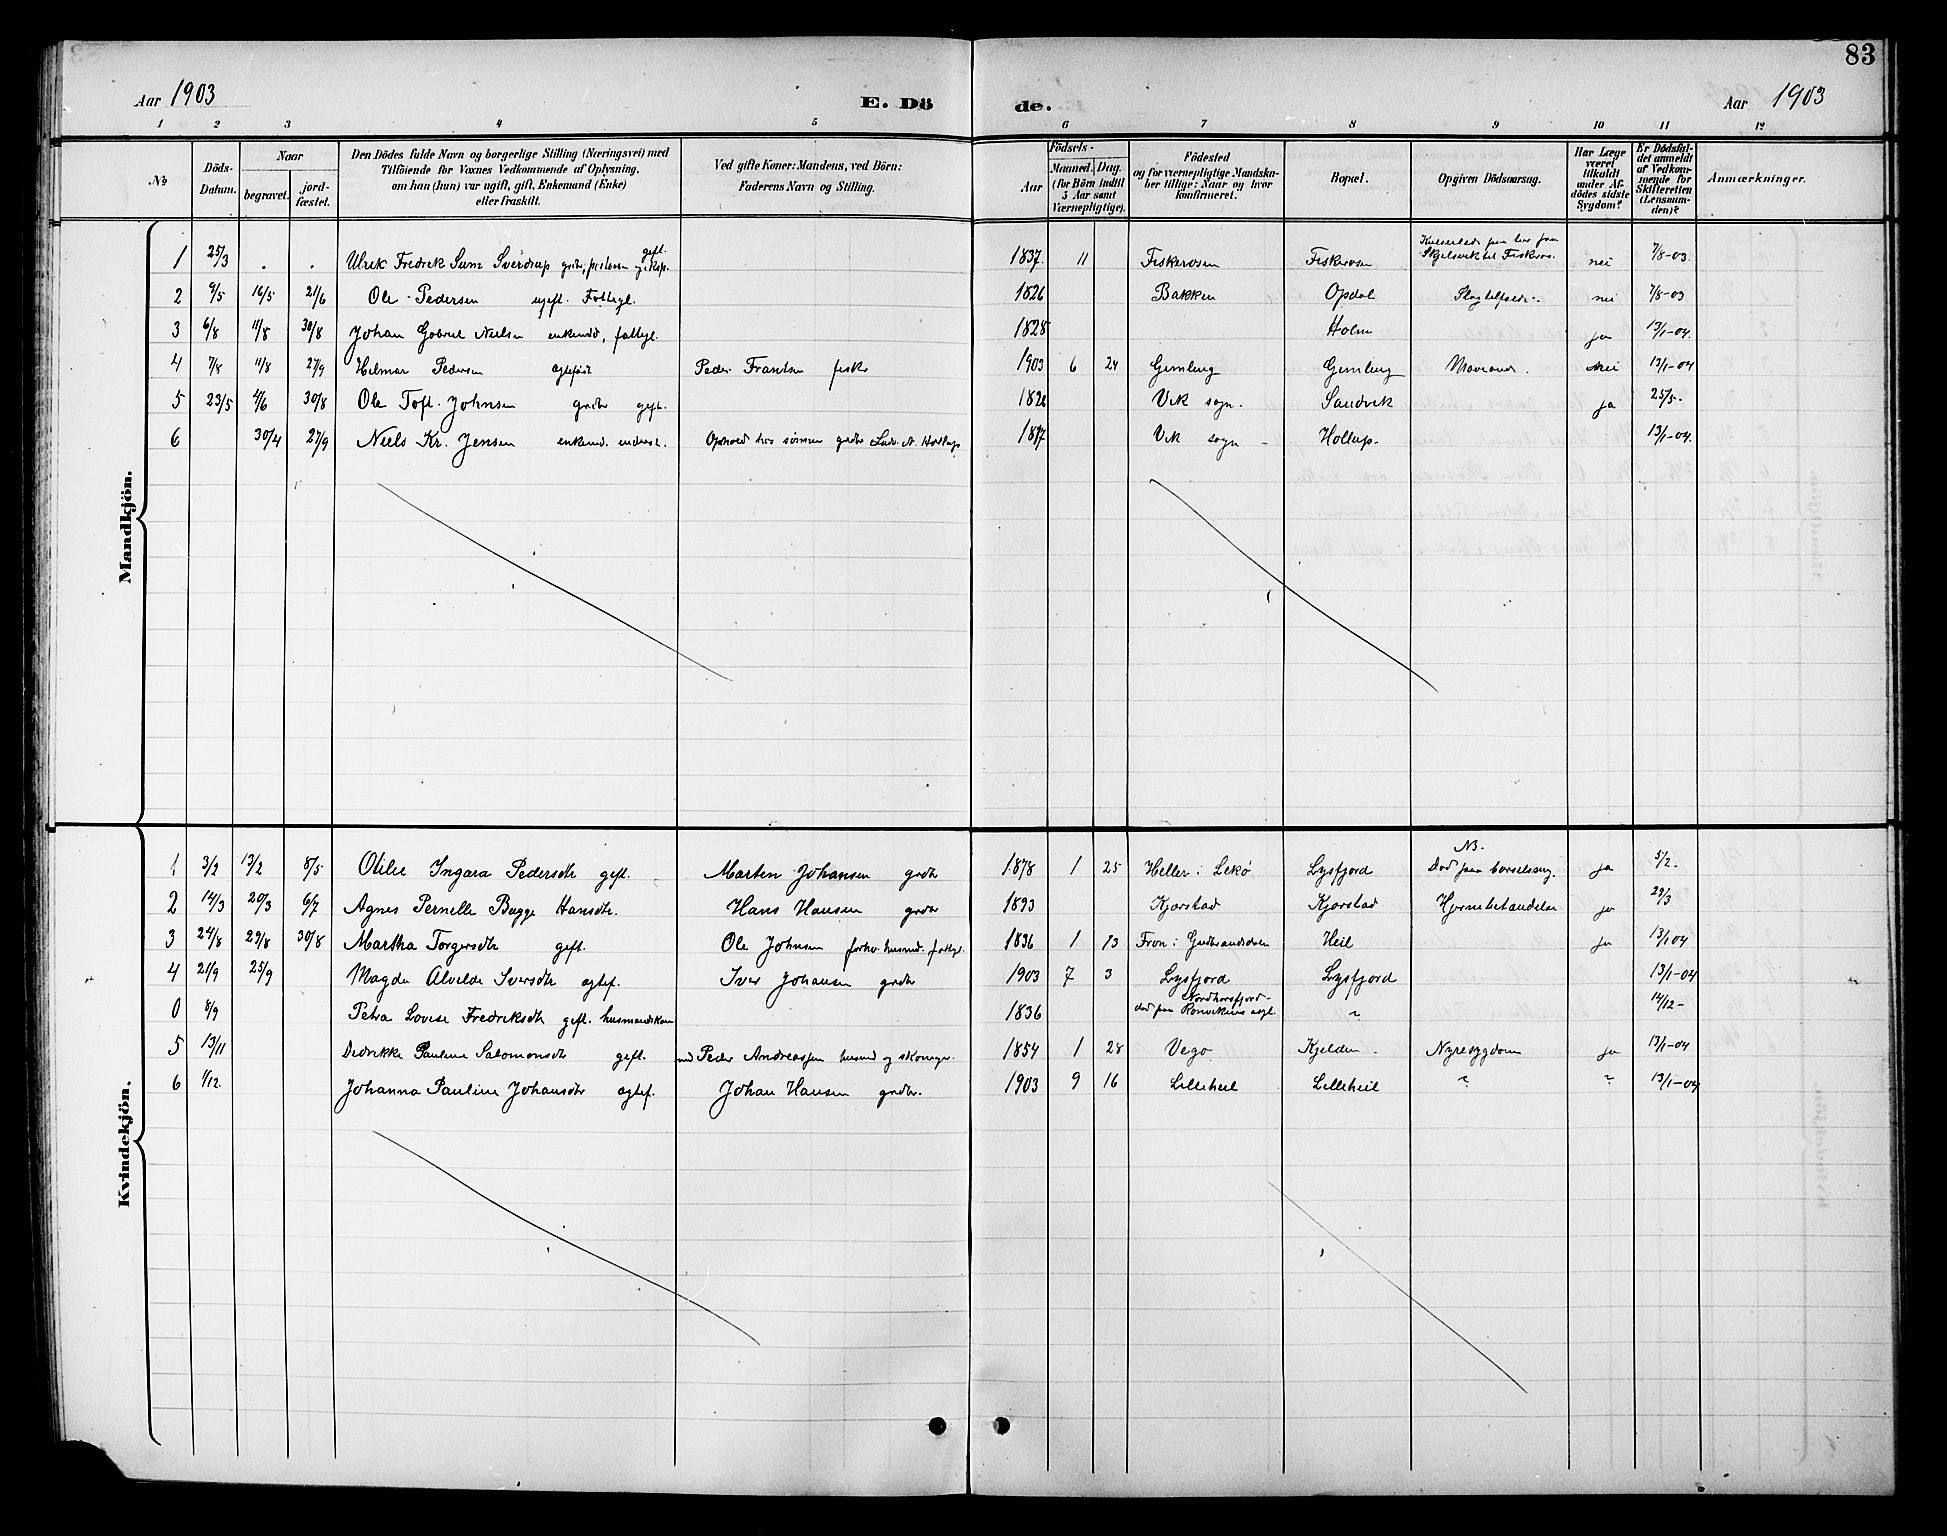 83
Aar 1903 E. Dö de. Aar 1903
1 2 3 4 5 6 7 8 9 10 11 12
No
Döds-Datum.
Naar
begravet. jord-fæstet.
Den Dödes fulde Navn og borgerlige Stilling (Næringsvei) med
Tilföiende for Voxnes Vedkommende af Oplysning,
om han (hun) var ugift, gift, Enkemand (Enke)
eller fraskilt.
Ved gifte Koner: Mandens, ved Börn:
Faderens Navn og Stilling.
Födsels-
Aar
Maaned. Dag.
(for Börn indtil
5 Aar samt
Værnepligtige).
Födested
og for værnepligtige Mandska-
ber tillige: Naar og hvor
konfirmeret.
Bopæl.
Opgiven Dödsaarsag.
Har Læge
været
tilkaldt
under Af-
dödes sidste
Sygdom?
Er Dödsfal-
det anmeldt
af Vedkom-
mende for
Skifteretten
(Lensman-
den)?
Anmærkninger.
Mandkjön.
1 25/3 . . Ulrik Fredrik Sverdrup gift. 1837. 11 Fiskerosen Fiskerosen nei 7/8-03.
2 9/5 16/5 21/6 Ole Pedersen ugift. Fattigl. 1826 Bakken Opdal Slagtilfælde nei 7/8-03
3 6/8 11/8 30/8 Johan Gabriel Nielsen enkemd, fattigl. 1828 Holm ja 13/1-04.
4 7/8 11/8 27/9 Hilmar Pedersen ægtefödt Peder Frantsen fisker 1903 6 24 Gimling Gimling nei 13/1-04
5 23/5 4/6 30/8 Ole Toft. Johnsen grdbr gift. Vik sogn. Sandvik ja 25/5-
6 30/4 27/9 Niels Kr. Jensen enkemd. Ophold hos sönnen grdbr 1817 Vik sogn Hollup 13/1-04.
Kvindekjön.
1 3/2 13/2 8/5 Otilie Ingara Pedersdtr gift. Marten Johansen grdbr 1878 1 25 Heller i Lekö Lysfjord NB. Död paa barselseng. ja 5/2-
2 14/3 20/3 6/7 Agnes Pernelle Bugge Hansdtr. Hans Hansen grdbr 1893 Kjørstad Kjørstad Hjernebetændelse ja 29/3
3 24/8 29/8 30/8 Martha Torgersdtr gift. Ole Johnsen forhv. husmd. fattigl. 1836 1 13 Fron i Gudbrandsdalen Heil ja 13/1 04
4 21/9 25/9 Magda Alvilde Iversdtr ægtef. Iver Johansen grdbr 1903 7 3 Lysfjord Lysfjord 13/1-04
0 8/9 Petra Lovise Fredriksdtr gift. husmandskone 1836 Nordhorsfjord- död paa Rønvikens asyl. " 14/12-
5 13/11 Didrikke Pauline Salomonsdtr gift. m Peder Andreassen husmd og skomagr. 1854 1 28 Vega Kjelden. Nyresygdom ja 13/1-04
6 1/12. Johanna Pauline Johansdtr ægtef. Johan Hansen grdbr. 1903 9 16 Lilleheil Lilleheil ? ? 13/1-04